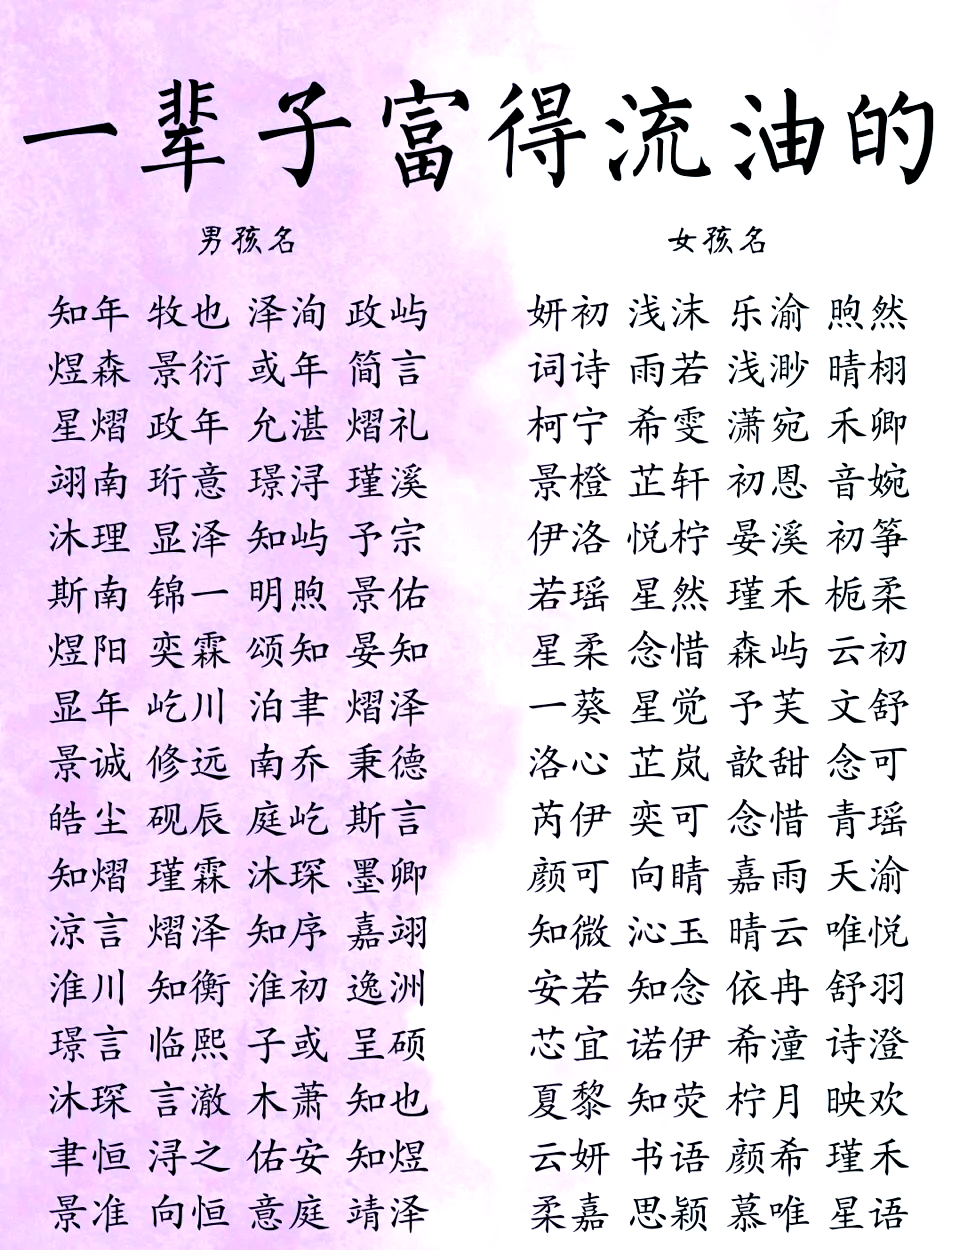 一辈子富得流油的
男孩名 女孩名
知年 牧也 泽洵 政屿 妍初 浅沫 乐渝 煦然
煜森 景衍 或年 简言 词诗 雨若 浅渺 晴栩
星熠 政年 允湛 熠礼 柯宁 希雯 潇宛 禾卿
翊南 珩意 璟浔 瑾溪 景橙 芷轩 初恩 音婉
沐理 显泽 知屿 予宗 伊洛 悦柠 晏溪 初筝
斯南 锦一 明煦 景佑 若瑶 星然 瑾禾 栀柔
煜阳 奕霖 颂知 晏知 星柔 念惜 森屿 云初
显年 屹川 泊聿 熠泽 一葵 星觉 予芙 文舒
景诚 修远 南乔 秉德 洛心 芷岚 歆甜 念可
皓尘 砚辰 庭屹 斯言 芮伊 奕可 念惜 青瑶
知熠 瑾霖 沐琛 墨卿 颜可 向晴 嘉雨 天渝
涼言 熠泽 知序 嘉翊 知微 沁玉 晴云 唯悦
淮川 知衡 淮初 逸洲 安若 知念 依冉 舒羽
璟言 临熙 子或 呈硕 芯宜 诺伊 希潼 诗澄
沐琛 言澈 木萧 知也 夏黎 知荧 柠月 映欢
聿恒 浔之 佑安 知煜 云妍 书语 颜希 瑾禾
景淮 向恒 意庭 靖泽 柔嘉 思颖 慕唯 星语